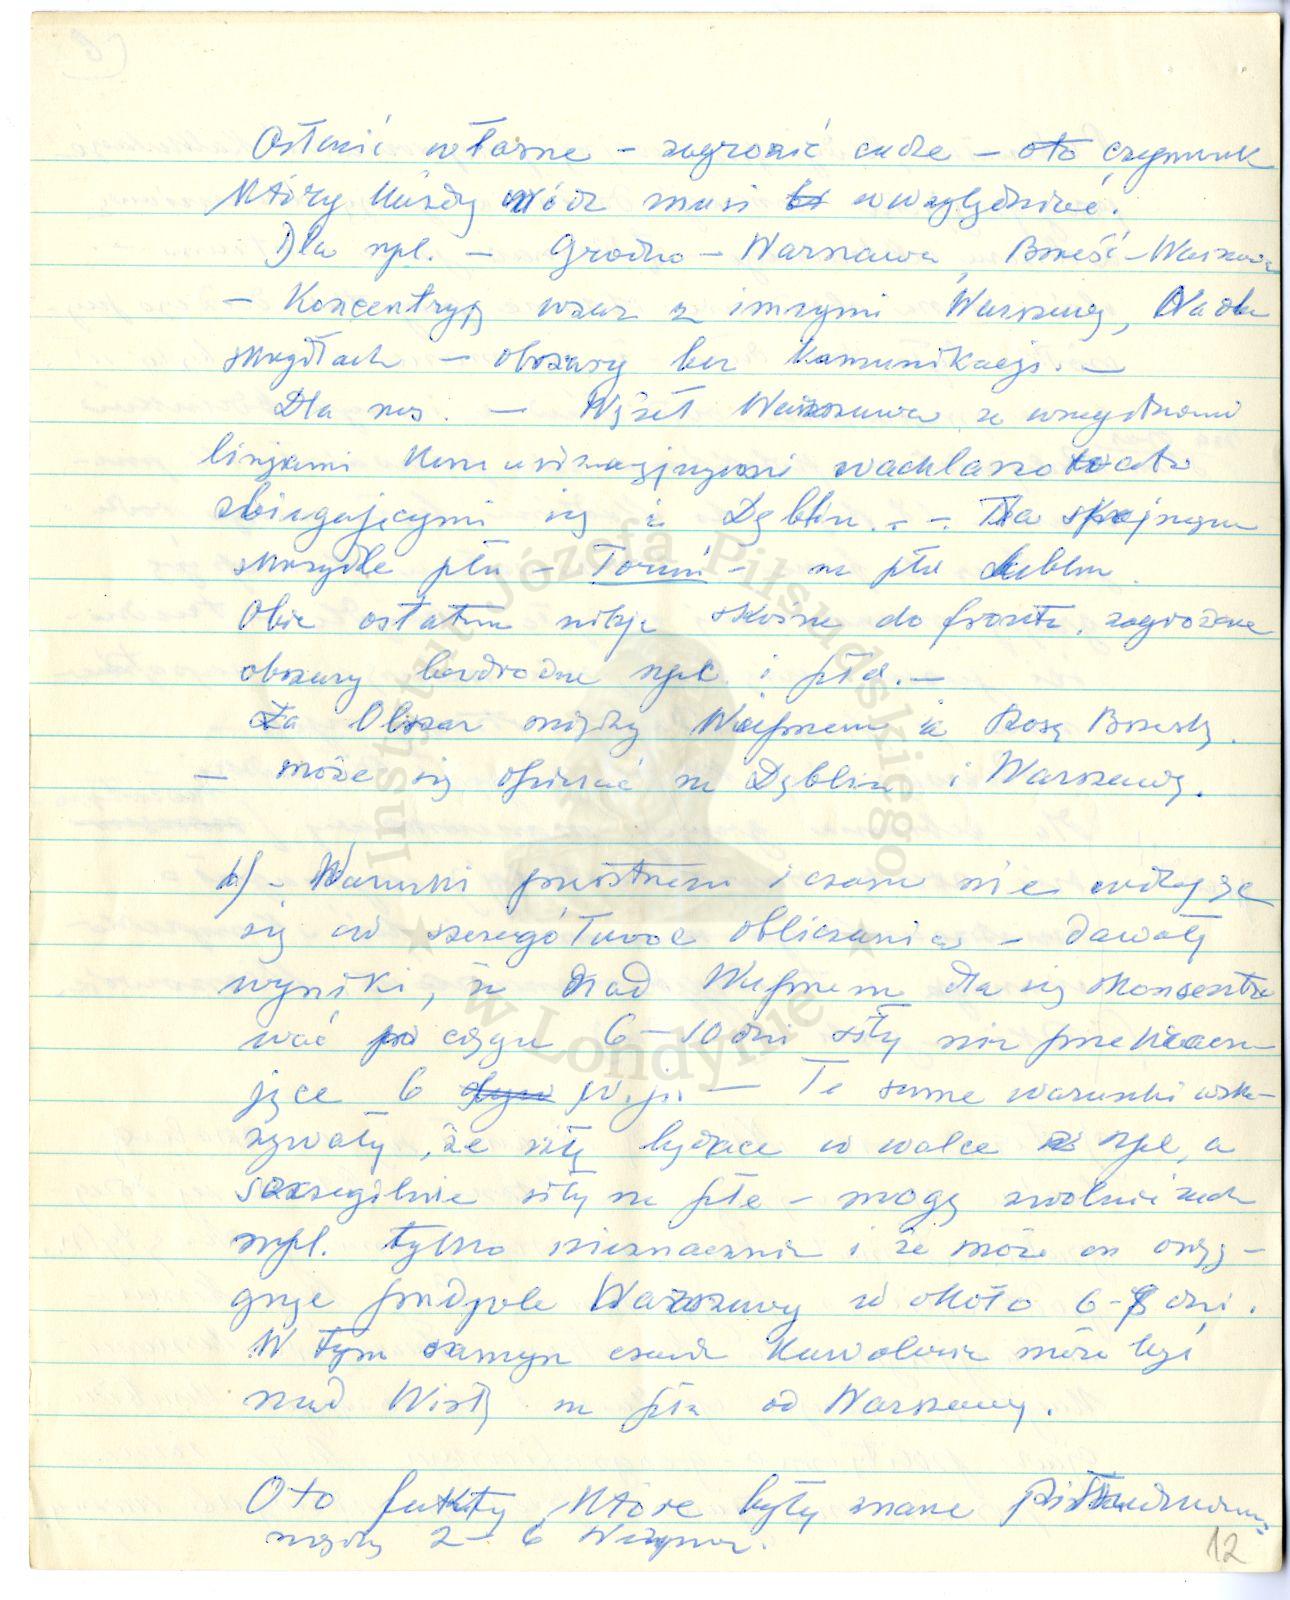 Osłonić własne – zagrozić cudze – oto czynnik
który każdy wódz musi uwzględniać.
Dla npl. – Grodno – Warszawa, Brześć – Warszawa
– Koncentrują wraz z innymi Warszawę, Na obu
skrzydłach – obszary bez komunikacji. –
Dla nas. – Węzeł Warszawa ze wszystkimi
linjami komunikacyjnymi wachlarzowato
zbiegającymi się i Dęblin. – – Na skrajnym
skrzydle płn – Toruń – na płd Lublin.
Obie ostatnie skośne do frontu, zagrożone
obszary bezdrożne npl. i płd. –
Za Obszar między Wieprzem a Szosą Brzeską.
– może się opierać na Dęblin i Warszawę.
b) – Warunki przestrzeni i czasu nie wdając
się w szczegółowe obliczenia – dawały
wyniki, że nad Wieprzem da się skoncentro
wać po ciągu 6–10 dni siły nie przekracza–
jące 6 w.j. – Te same warunki wska–
zywały, że siły będące w walce npl, a
szczególnie siły na płd – mogą zwolnić ruch
npl. tylko nieznacznie i że może on osią–
gnąć przedpole Warszawy w około 6–8 dni.
W tym samym czasie Kawaleria może być
nad Wisłą na płn od Warszawy.
Oto fakty, które były znane Piłsudskiemu
między 2–6 sierpnia.
12
Instytut Józefa Piłsudskiego
w Londynie